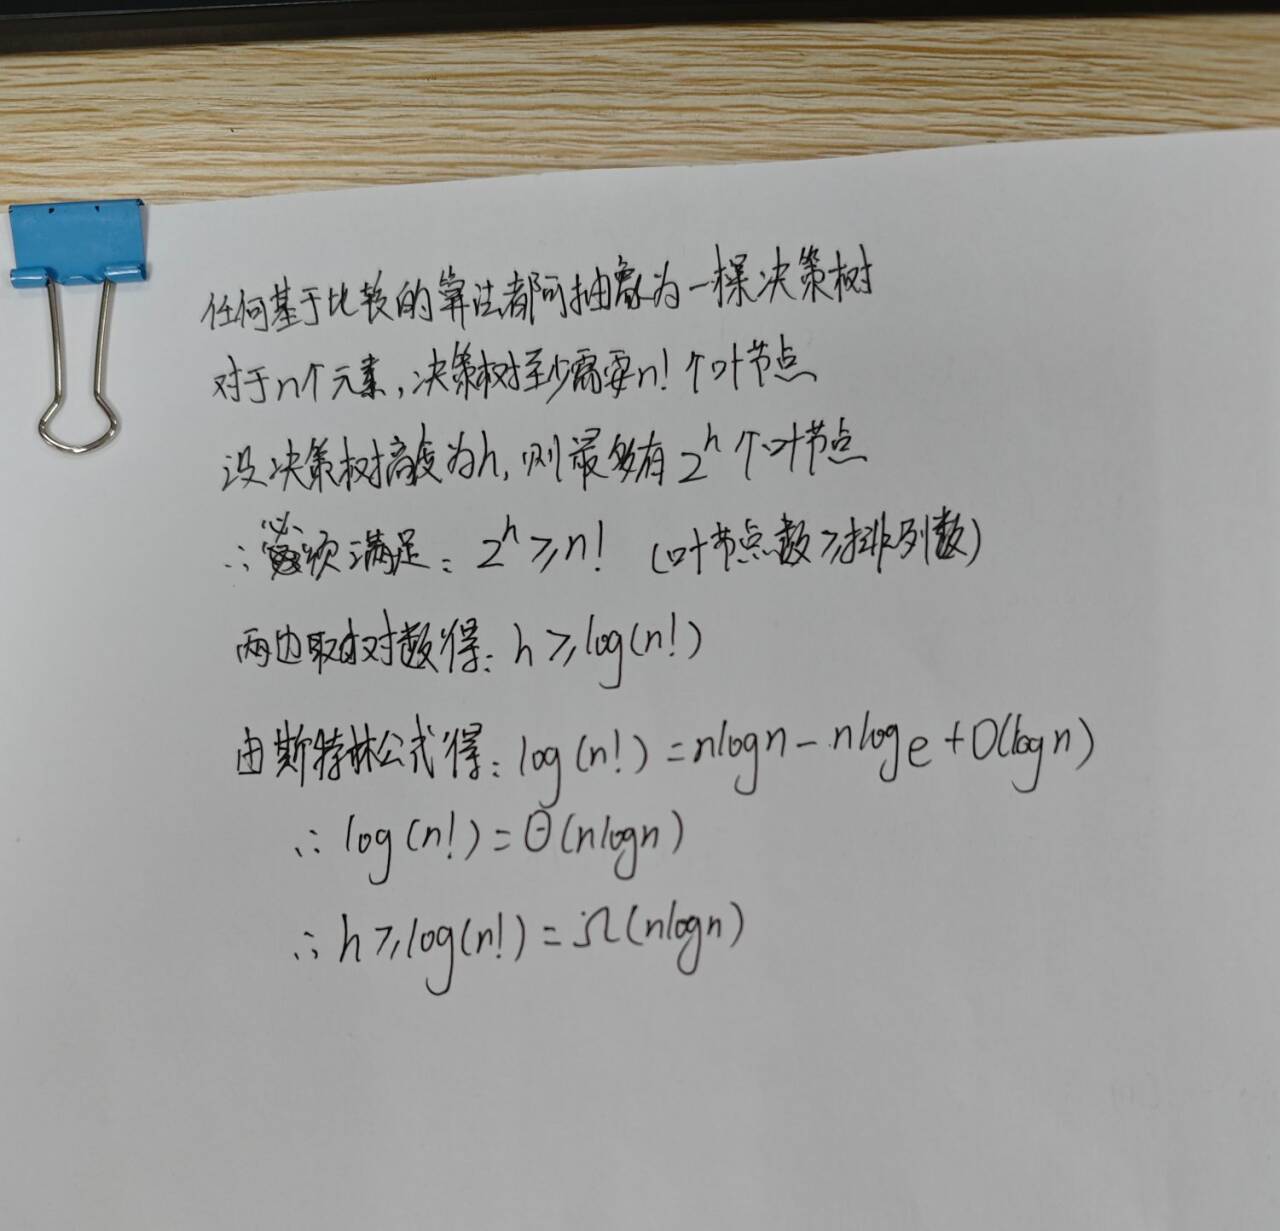 任何基于比较的算法都可抽象为一棵决策树
对于n个元素,决策树至少需要n!个叶节点
设决策树高度为h,则最多有2^h个叶节点
∴必须满足:2^h≥n! (叶节点数≥排列数)
两边取对数得:h≥log(n!)
由斯特林公式得:log(n!)=nlogn-nloge+O(logn)
∴log(n!)=Θ(nlogn)
∴h≥log(n!)=Ω(nlogn)